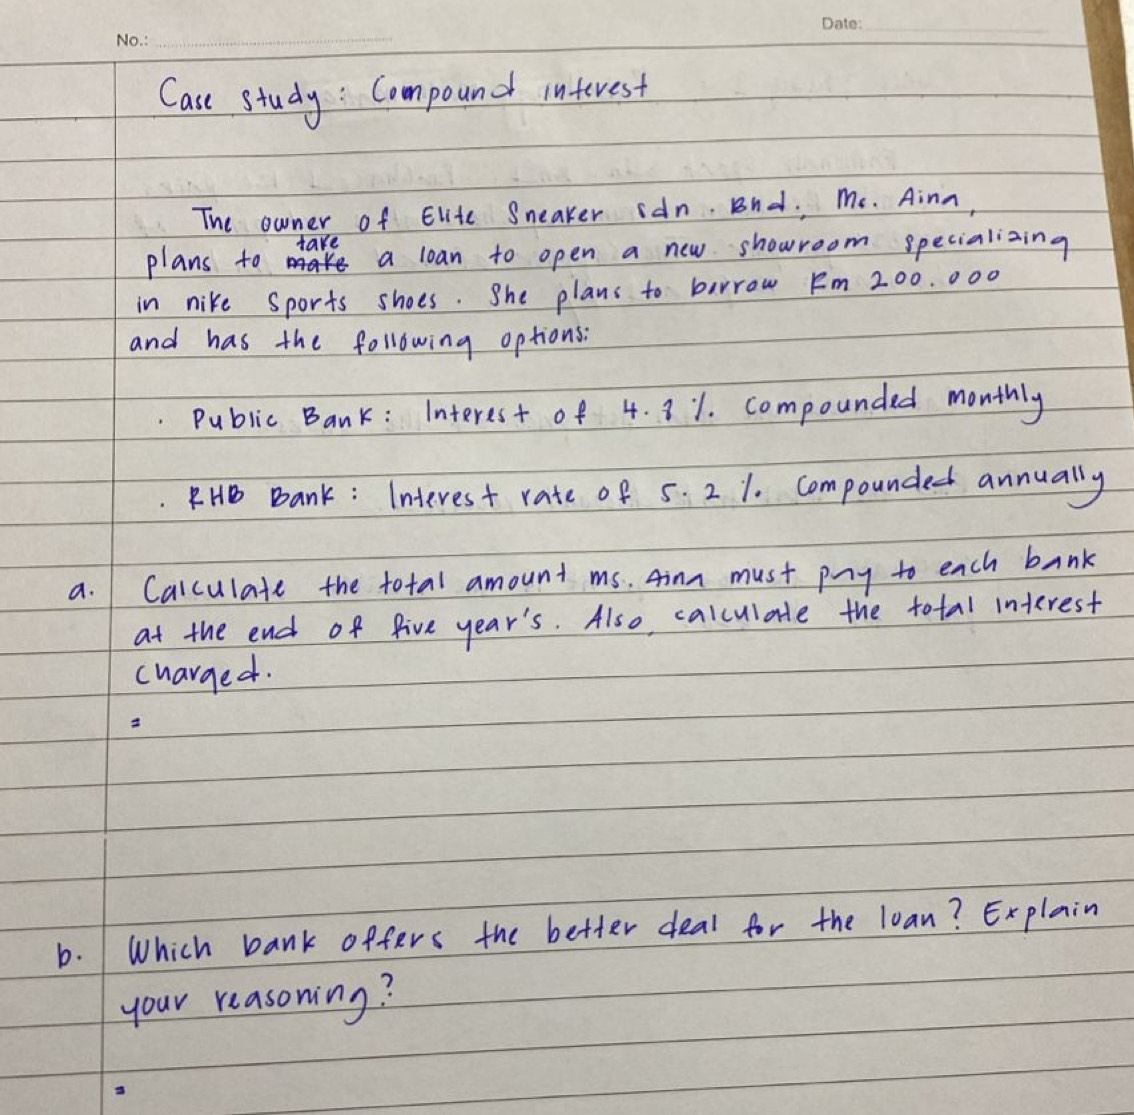 No.:
Date:
Case study: Compound interest
The owner of Elite Sneaker sdn. Bhd. Ms. Aina,
plans to take a loan to open a new showroom specializing
in nike Sports shoes. She plans to borrow Rm 200.000
and has the following options:
· Public Bank: Interest of 4.8%. compounded monthly
· RHB Bank: Interest rate of 5.2%. compounded annually
a. Calculate the total amount ms. Aina must pay to each bank
at the end of five year's. Also, calculate the total interest
charged.
=
b. Which bank offers the better deal for the loan? Explain
your reasoning?
=